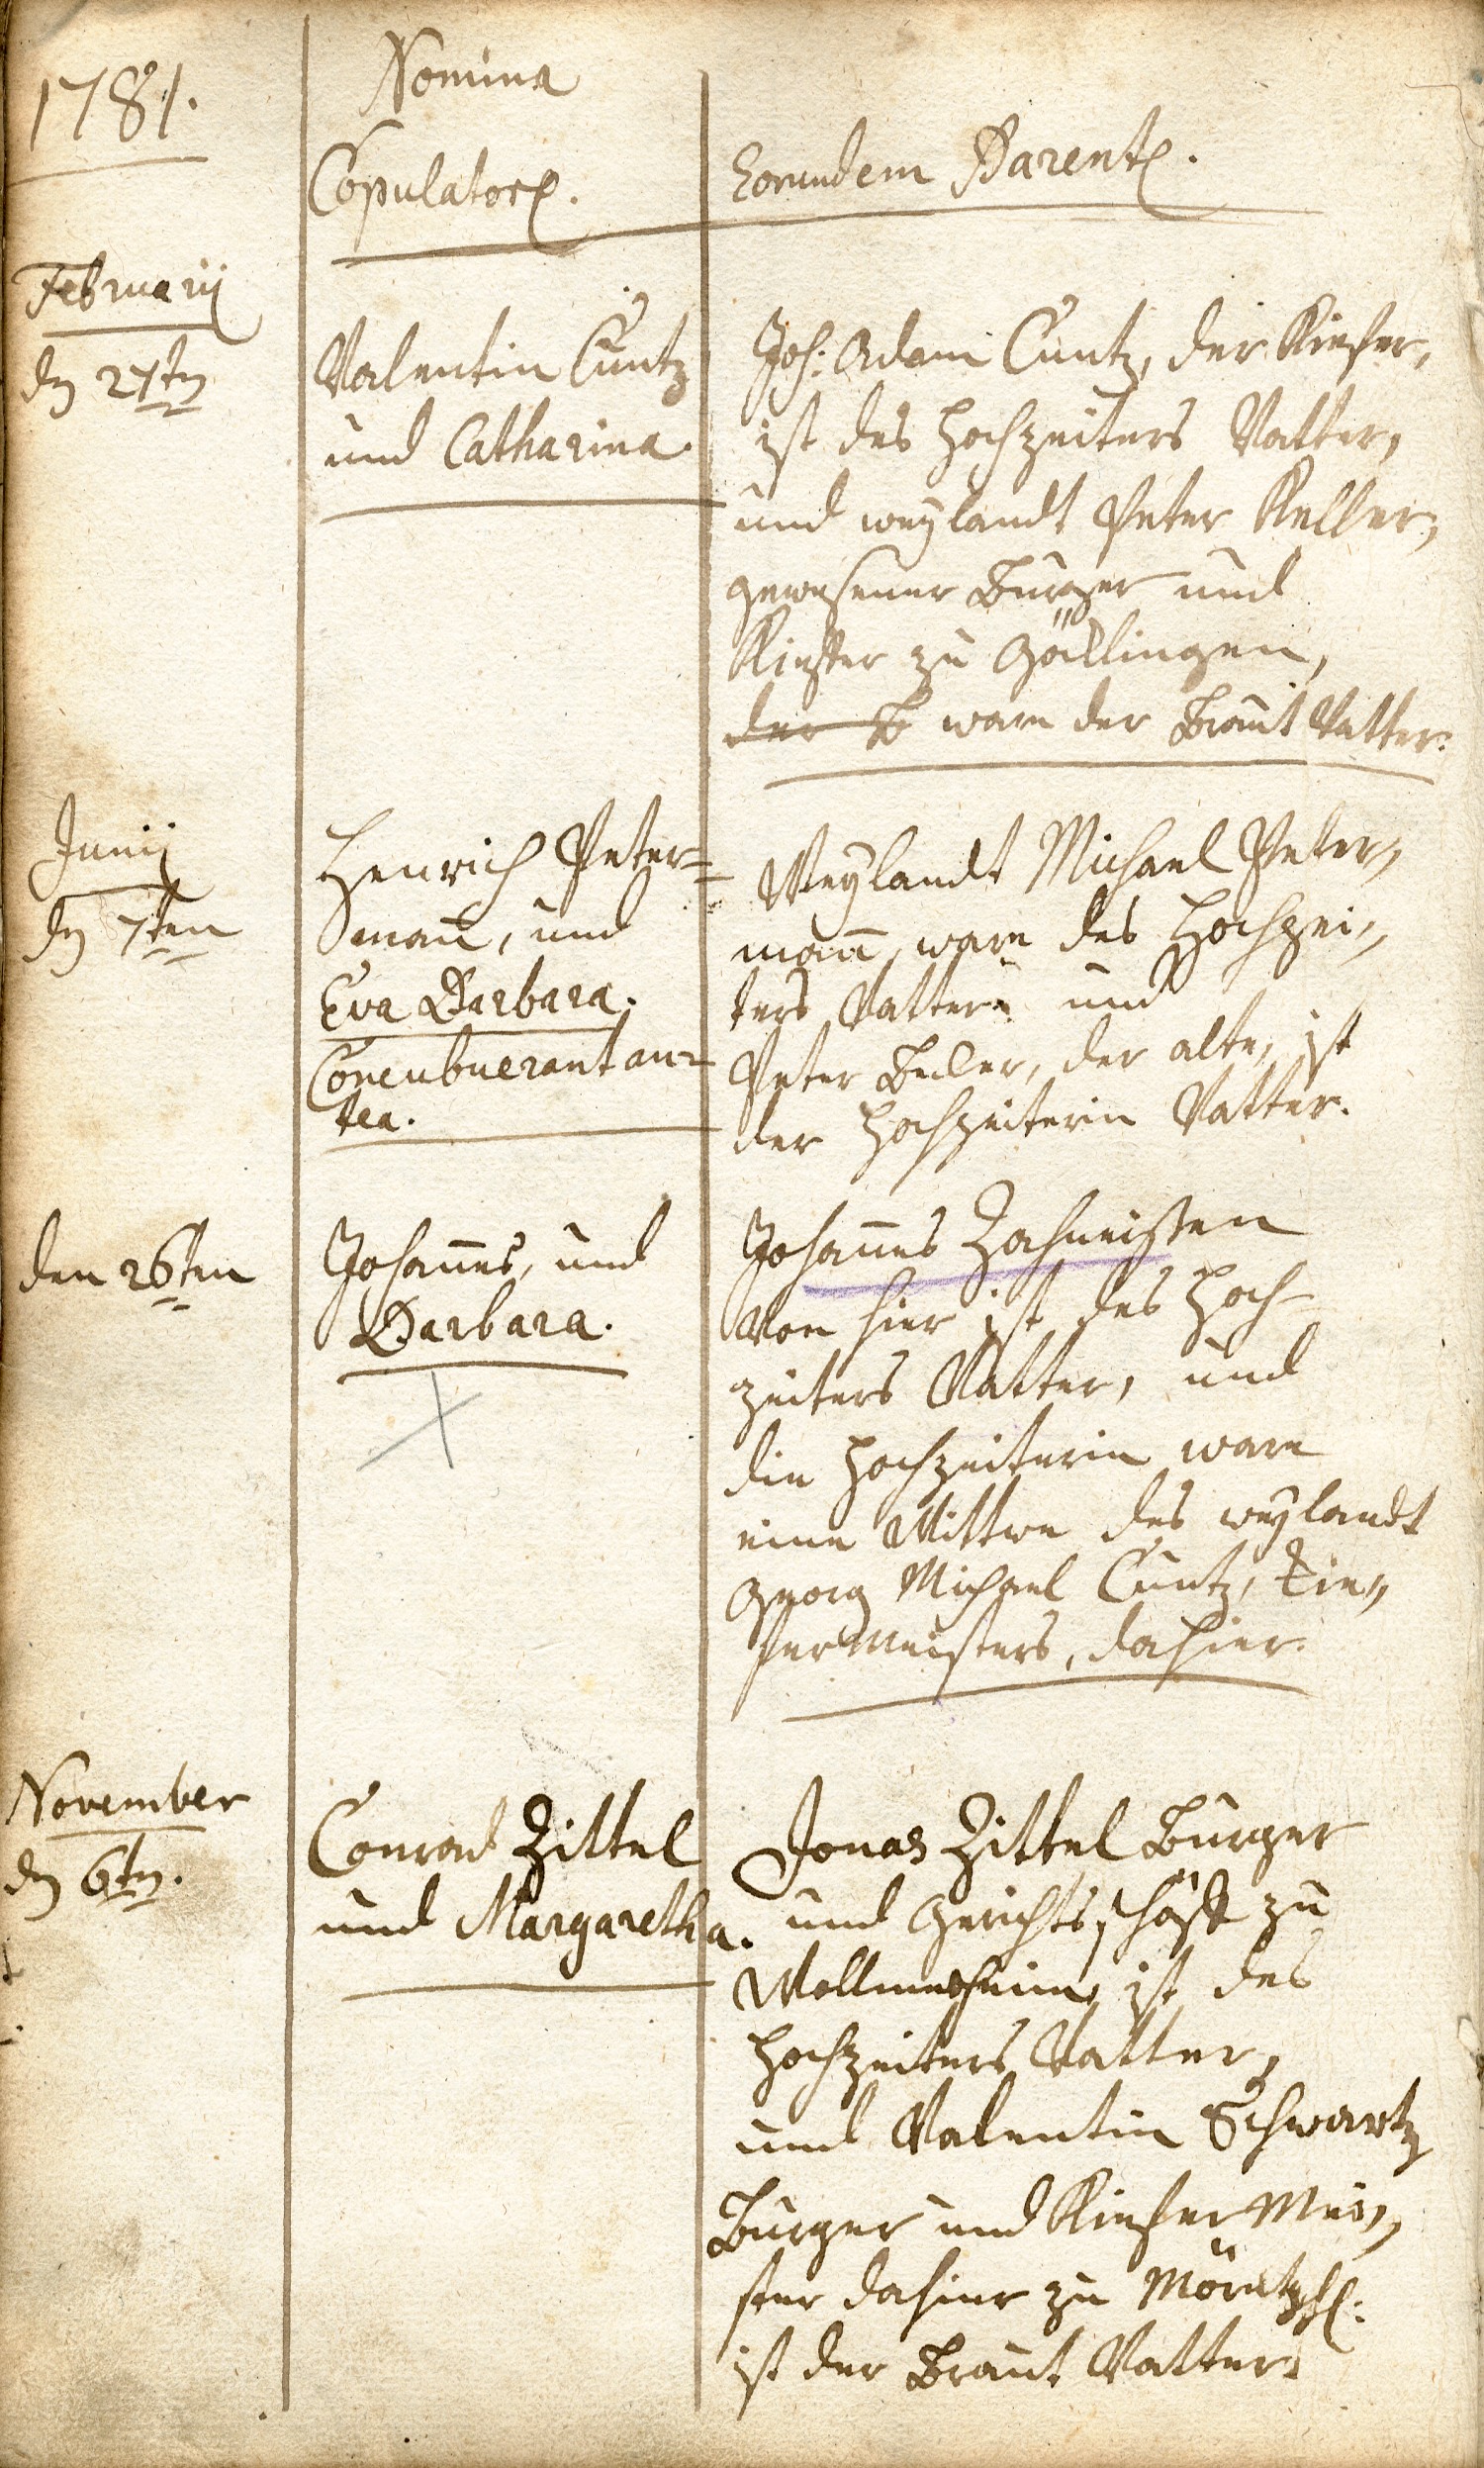 1781.
Nomina
Copulator.
Eorundem Parent.
Februarij
dn 27tn
Valentin Cuntz
und Catharina.
Joh: Adam Cuntz, der Kiefer,
ist des Hochzeiters Vatter,
und weylandt Peter Keller,
gewesener Burger und
Kieffer zu Göcklingen,
der B ware der Braut Vatter.
Junij
dn 7ten
Henrich Peter=
man̄, und
Eva Barbara.
Concubuerant an=
tea.
Weylandt Michael Peter,,
man̄ ware des Hochzei,,
ters Vatter und
Peter der alte, ist
der Hochzeiterin Vatter.
den 26ten
Johan̄es, und
Barbara.
Johan̄es
von hier ist des Hoch-
zeiters Vatter, und
die Hochzeiterin ware
eine Wittwe des weylandt
Georg Michael Cuntz, Kie,,
fermeisters, dahier.
November
dn 6tn.
Conrad Zittel
und Margaretha.
Jonas Zittel Burger
und Gerichtsschöff zu
Wollmesheim, ist des
Hochzeiters Vatter,
und Valentin Schwartz
Burger und Kiefer Mei,,
ster dahier zu Mörtzh:
ist der Braut Vatter.